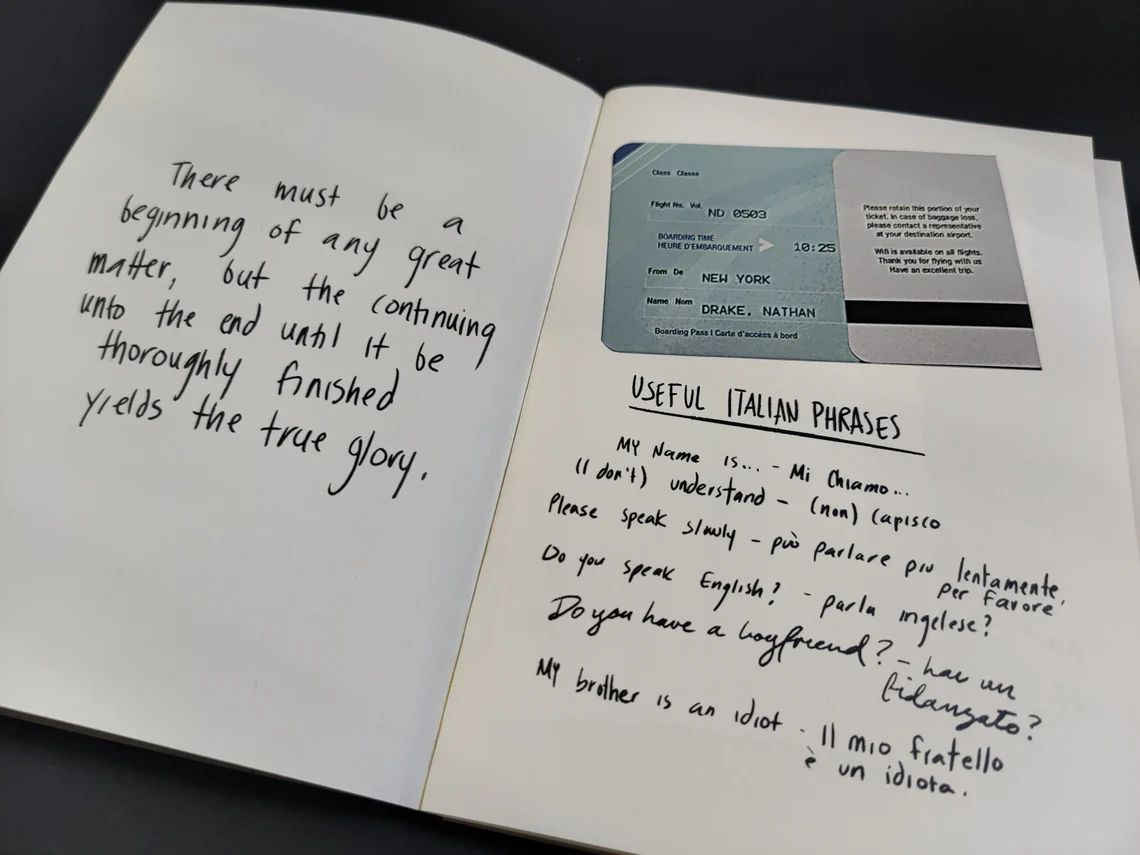 There must be a
beginning of any great
matter, but the continuing
unto the end until it be
thoroughly finished
yields the true glory.
Class Classe
Flight No. Vol.
ND 0503
BOARDING TIME
HEURE D'EMBARQUEMENT
10:25
From De
NEW YORK
Name Nom
DRAKE, NATHAN
Boarding Pass | Carte d'accèss à bord
Please retain this portion of your
ticket. In case of baggage loss,
please contact a representative
at your destination airport.
Wifi is available on all flights.
Thank you for flying with us
Have an excellent trip.
USEFUL ITALIAN PHRASES
MY Name is... - Mi Chiamo...
(I don't) understand - (non) capisco
Please speak slowly - può parlare piu lentamente,
per favore
Do you speak English? - parla inglese?
Do you have a boyfriend? - hai un
fidanzato?
MY brother is an idiot - Il mio fratello
è un idiota.